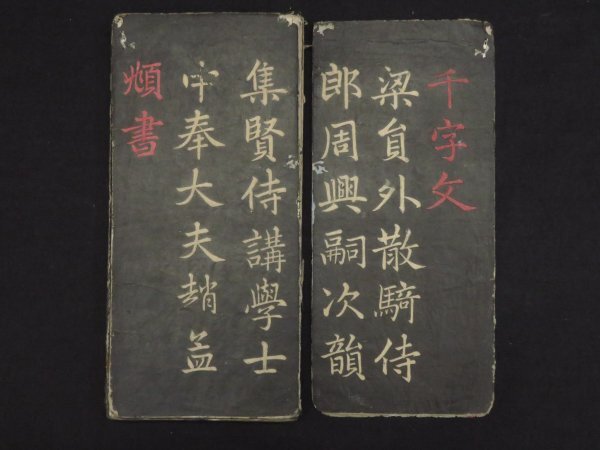 千字文
梁員外散騎侍
郎周興嗣次韻
集賢侍講學士
中奉大夫趙孟
頫書